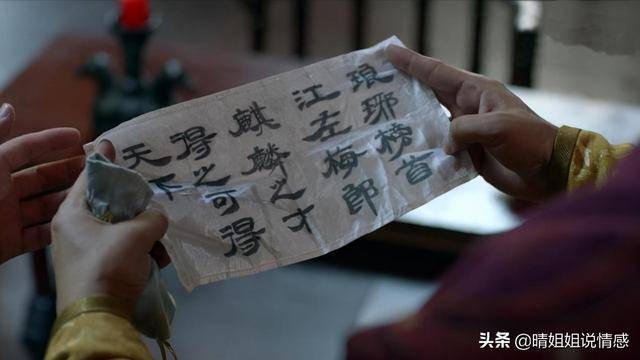 琅琊榜首
江左梅郎
麒麟之才
得之可得
天下
头条 @晴姐姐说情感